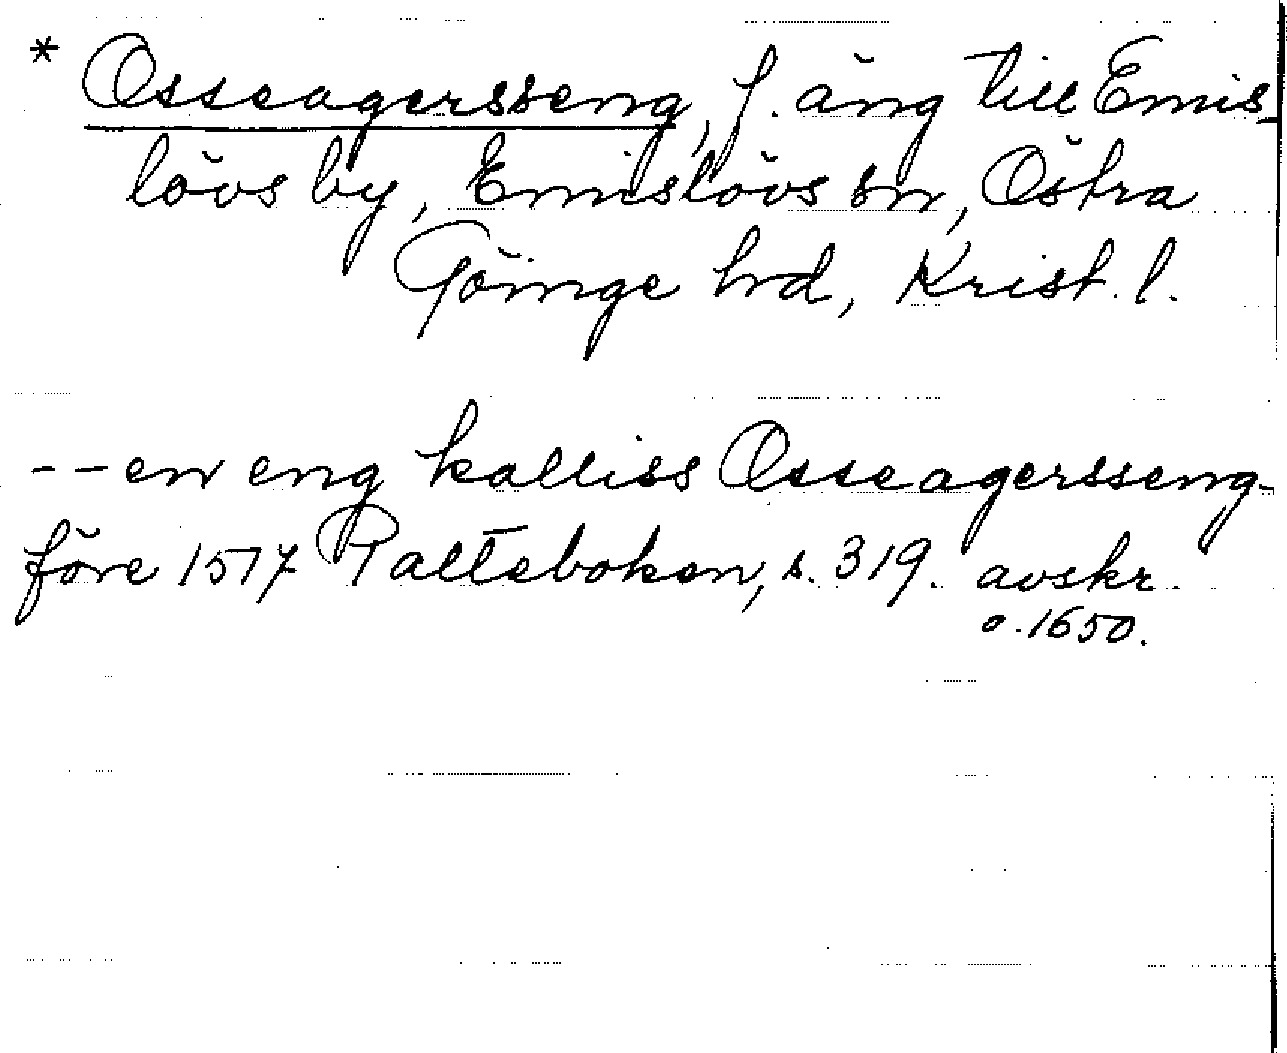 * Osseagersseng, f. äng till Emis-
lövs by, Emislövs sn, Östra
Göinge hrd, Krist. l.
-- en eng kalliss Osseagersseng -
före 1517 Palteboken, s. 319. avskr.
o. 1650.